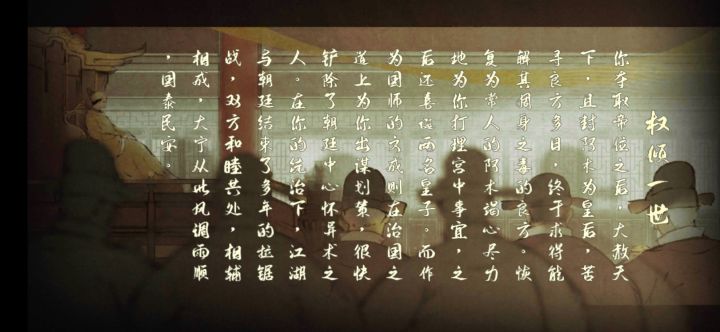 权倾一世
你夺取帝位之后，大赦天
下，且封阿术为皇后，苦
寻良方多日，终于求得能
解其周身之毒的良方。恢
复为常人的阿术竭心尽力
地为你打理宫中事宜，之
后还喜诞两名皇子。而作
为国师的成则在治国之
道上为你出谋划策，很快
铲除了朝廷中心怀异术之
人。在你的统治下，江湖
与朝廷结束了多年的拉锯
战，双方和睦共处，相辅
相成，大宁从此风调雨顺
，国泰民安。